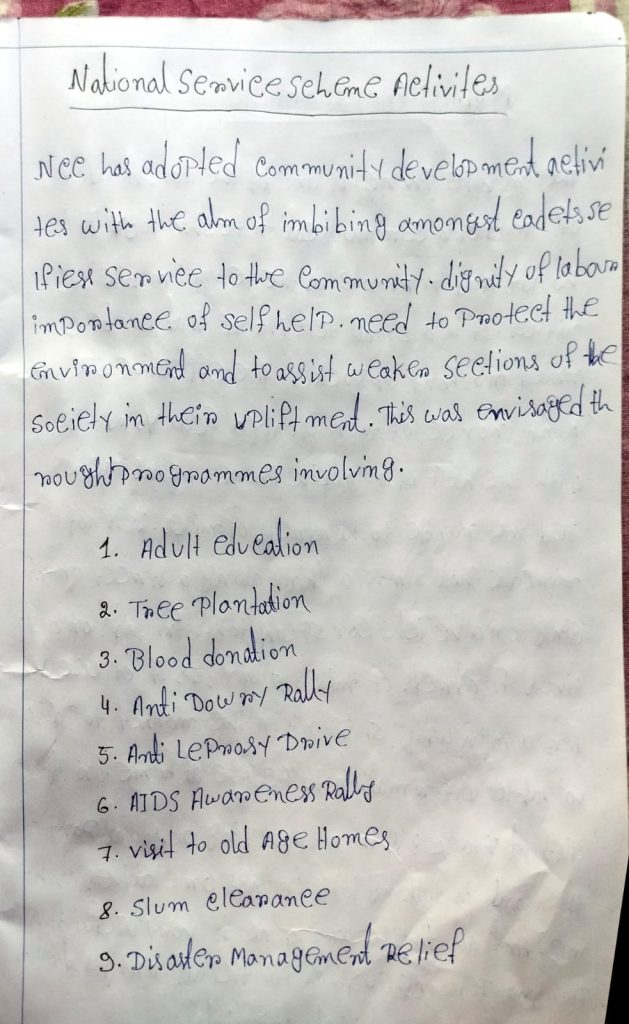 National Service Scheme Activites
NCC has adopted community development activi
tes with the alm of imbibing amongst cadets se
lfiess service to the community. dignity of labour
importance of self help. need to protect the
environment and to assist weaker sections of the
society in their upliftment. This was envisaged th
rought programmes involving.
1. Adult education
2. Tree plantation
3. Blood donation
4. Anti Dowry Rally
5. Anti Leprosy Drive
6. AIDS Awareness Rally
7. visit to old Age Homes
8. Slum clearance
9. Disaster Management Relief